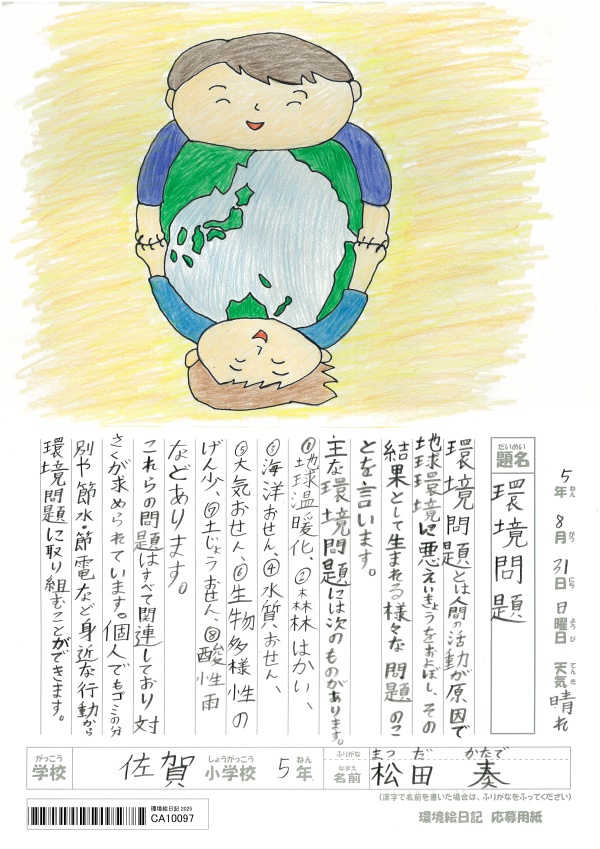 5年 8月 31日 日曜日 天気 晴れ
ねん がつ にち ようび てんき
だいめい
題名
環境問題
環境問題とは人間の活動が原因で
地球環境に悪えいきょうをおよぼし、その
結果として生まれる様々な問題のこ
とを言います。
主な環境問題には次のものがあります。
①地球温暖化、②森林はかい、
③海洋おせん、④水質おせん、
⑤大気おせん、⑥生物多様性の
げん少、⑦土じょうおせん、⑧酸性雨
などあります。
これらの問題はすべて関連しており対
さくが求められています。個人でもゴミの分
別や節水・節電など身近な行動から
環境問題に取り組むことができます。
がっこう しょうがっこう ねん ふりがな まつ だ かなで
学校 佐賀 小学校 5年 なまえ 名前 松田 奏
(漢字で名前を書いた場合は、ふりがなをふってください)
環境絵日記 応募用紙
環境絵日記 2025
CA10097